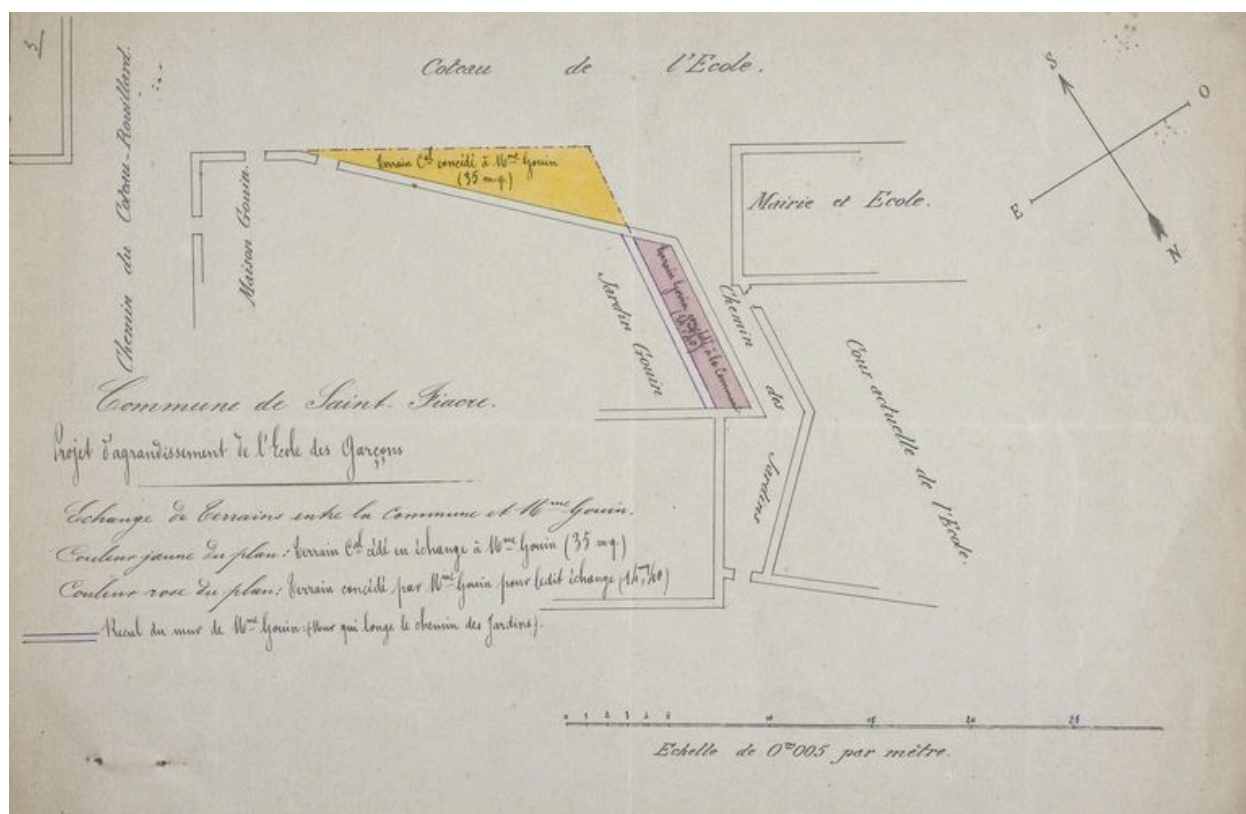 3
Coteau de l'Ecole.
Chemin du Coteau-Rouillard.
Maison Gouin.
Terrain Cal concédé à Mme Gouin
(35 m.q.)
Mairie et Ecole.
S
O
E
N
Jardin Gouin
Terrain Gouin concédé à la Commune
Chemin des Jardins
Cour actuelle de l'Ecole.
Commune de Saint-Fiacre.
Projet d'agrandissement de l'Ecole des Garçons
Echange de Terrains entre la Commune et Mme Gouin.
Couleur jaune du plan: Terrain Cal cédé en échange à Mme Gouin (35 mq.)
Couleur rose du plan: Terrain concédé par Mme Gouin pour ledit échange
Recul du mur de Mme Gouin: (Mur qui longe le chemin des Jardins).
0 1 2 3 4 5 10 15 20 25
Echelle de 0m005 par mètre.